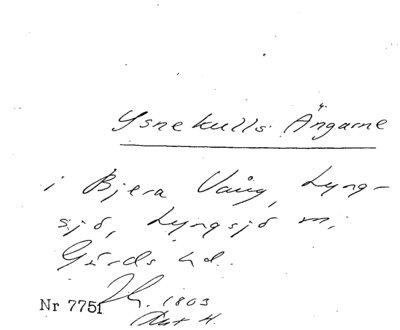 Ysnekulls Ängarne
i Bjera Vång, Lyng-
sjö, Lyngsjö sn,
Gärds hd.
Nr 7751
1803